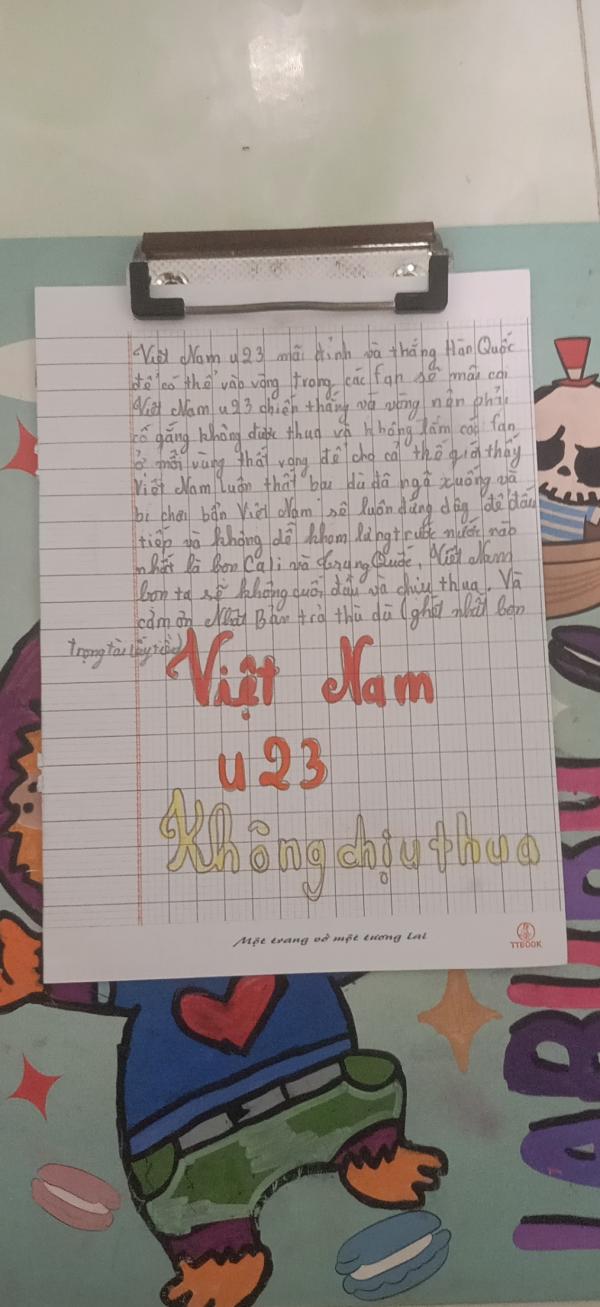 Việt Nam u23 mãi đỉnh và thắng Hàn Quốc
để có thể vào vòng trong các fan sẽ mãi coi
Việt Nam u23 chiến thắng và vàng nên phải
cố gắng không được thua và không làm các fan
ở mỗi vùng thất vọng để cho cả thế giới thấy
Việt Nam luôn thất bại dù đã ngã xuống và
bị chơi bẩn Việt Nam sẽ luôn đứng dậy để đấu
tiếp và không dễ khom lưng trước nước nào
nhất là bọn Cali và Trung Quốc, Việt Nam
bọn ta sẽ không cuối đầu và chịu thua. Và
cảm ơn Nhật Bản trả thù dù (ghét nhất bọn
trọng tài lấy tiền)
Việt Nam
u23
Không chịu thua
Một trang vở một tương lai
TTBOOK
LABUBU